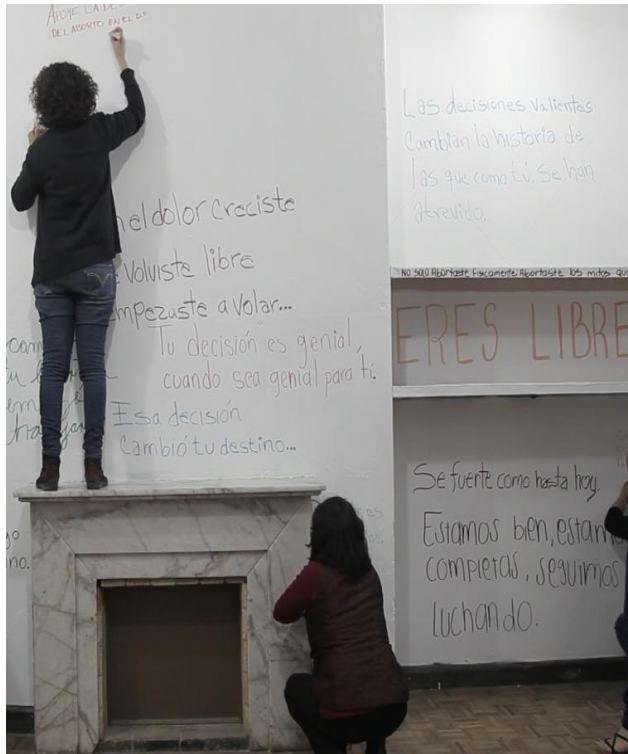 APOYE LA
DEL ABORTO EN EL
el dolor creciste
volviste libre
empezaste a volar...
Tu decisión es genial,
cuando sea genial para ti.
Esa decisión
Cambió tu destino...
Las decisiones valientes
Cambian la historia de
las que como tú, se han
atrevido.
No solo Abortaste Fisicamente Abortaste los mitos que
ERES LIBRE
Se fuerte como hasta hoy.
Estamos bien, estamos
completas, seguimos
luchando.